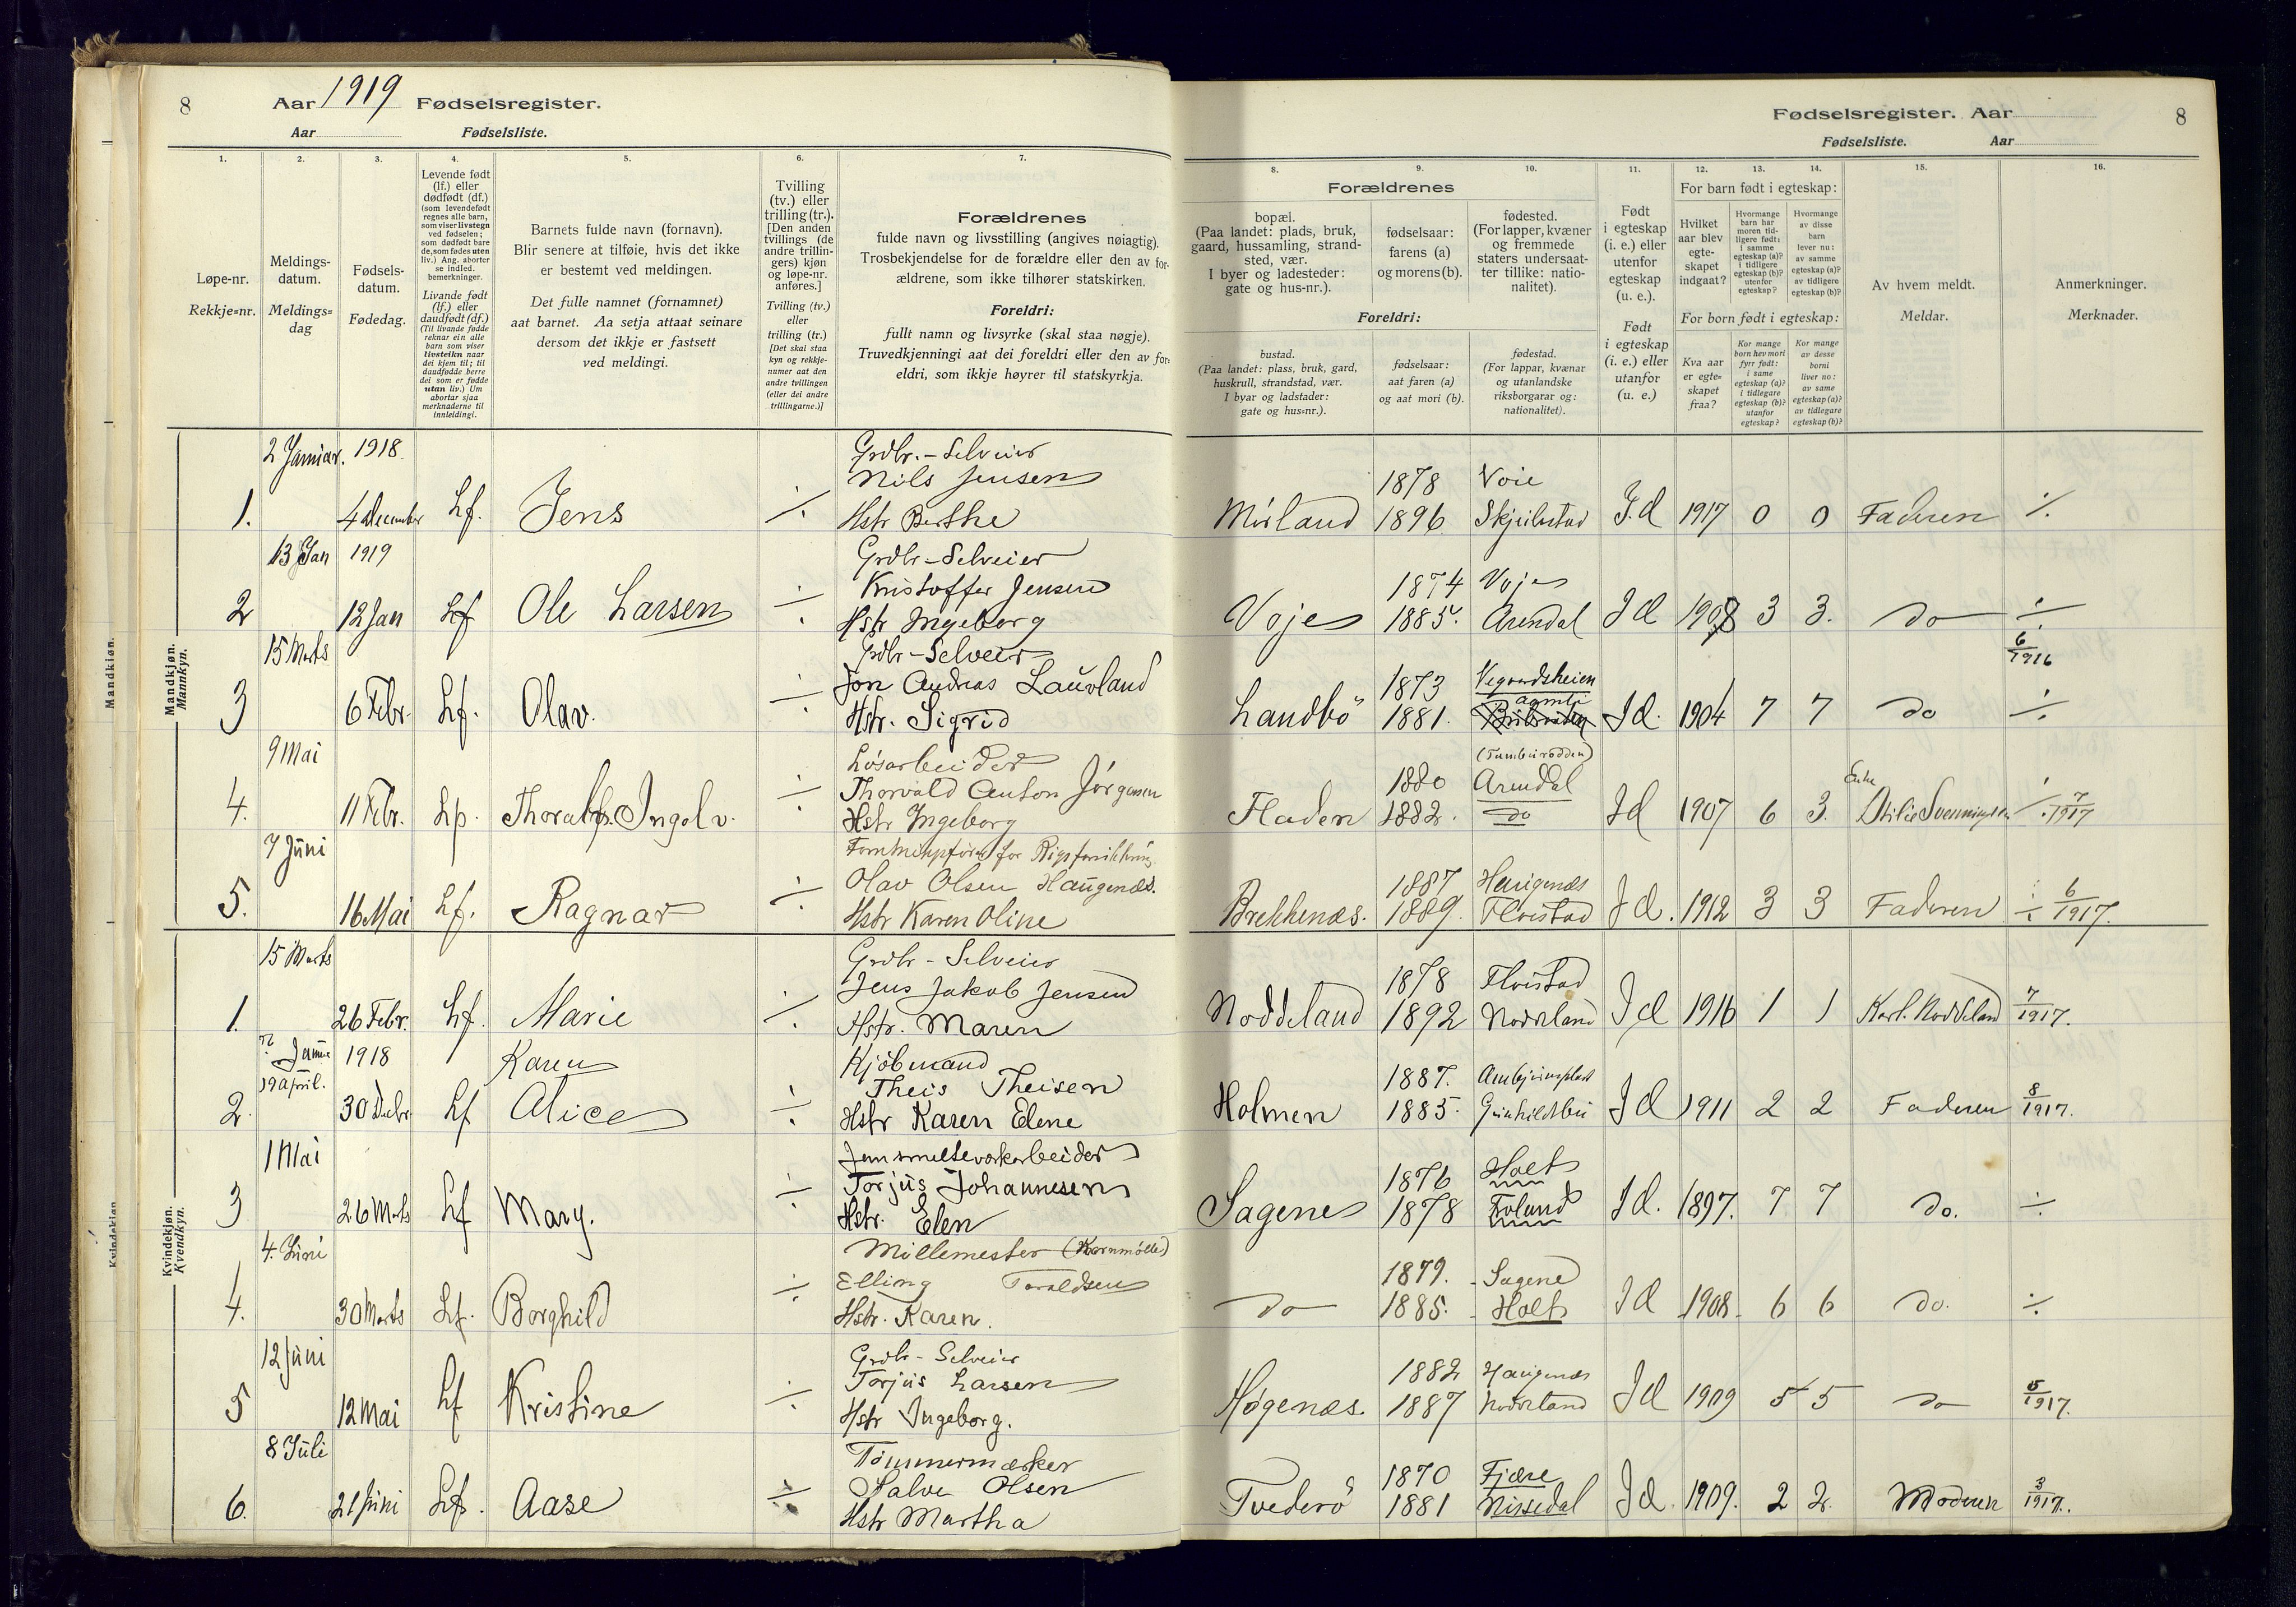 8 Aar 1919 Fødselsregister.
Aar Fødselsliste.
Fødselsregister. Aar 8
Fødselsliste. Aar
1. 2. 3. 4. 5. 6. 7.
Løpe-nr.
Rekkje=nr.
Meldings-
datum.
Meldings=
dag
Fødsels-
datum.
Fødedag.
Levende født
(lf.) eller
dødfødt (df.)
(som levendefødt
regnes alle barn,
som viser livstegn
ved fødselen;
som dødfødt bare
de, som fødes uten
liv.) Ang. aborter
se indled.
bemerkninger.
Livande født
(lf.) eller
daudfødt (df.)
(Til livande fødde
reknar ein alle
barn som viser
livsteikn naar
dei kjem til; til
daudfødde berre
dei som er fødde
utan liv.) Um
abortar sjaa
merknaderne til
innleidingi.
Barnets fulde navn (fornavn).
Blir senere at tilføie, hvis det ikke
er bestemt ved meldingen.
Det fulle namnet (fornamnet)
aat barnet. Aa setja attaat seinare
dersom det ikkje er fastsett
ved meldingi.
Tvilling
(tv.) eller
trilling (tr.).
[Den anden
tvillings (de
andre trillin-
gers) kjøn
og løpe-nr.
anføres.]
Tvilling (tv.)
eller
trilling (tr.)
[Det skal staa
kyn og rekkje-
numer aat den
andre tvillingen
(eller dei andre
trillingarne.)]
Forældrenes
fulde navn og livsstilling (angives nøiagtig).
Trosbekjendelse for de forældre eller den av for-
ældrene, som ikke tilhører statskirken.
Foreldri:
fullt namn og livsyrke (skal staa nøgje).
Truvedkjenningi aat dei foreldri eller den av for-
eldri, som ikkje høyrer til statskyrkja.
8. 9. 10. 11. 12. 13. 14. 15. 16.
Forældrenes
bopæl.
(Paa landet: plads, bruk,
gaard, hussamling, strand-
sted, vær.
I byer og ladesteder:
gate og hus-nr.).
fødselsaar:
farens (a)
og morens (b).
fødested.
(For lapper, kvæner
og fremmede
staters undersaat-
ter tillike: natio-
nalitet).
Foreldri:
bustad.
(Paa landet: plass, bruk, gard,
huskrull, strandstad, vær.
I byar og ladstader:
gate og hus=nr.).
fødselsaar:
aat faren (a)
og aat mori (b).
fødestad.
(For lappar, kvænar
og utanlandske
riksborgarar og:
nationalitet).
Født
i egteskap
(i. e.) eller
utenfor
egteskap
(u. e.).
Født
i egteskap
(i. e.) eller
utanfor
(u. e.)
For barn født i egteskap:
Hvilket
aar blev
egte-
skapet
indgaat?
Hvormange
barn har
moren tid-
ligere født:
i samme
egteskap (a)?
i tidligere
egteskap (b)?
utenfor
egteskap?
Hvormange
av disse
barn
lever nu:
av samme
egteskap (a)?
av tidligere
egteskap (b)?
For born født i egteskap:
Kva aar
er egte=
skapet
fraa?
Kor mange
born hev mori
fyrr født:
i same
egteskap (a)?
i tidlegare
egteskap (b)?
utanfor
egteskap?
Kor mange
av desse
borni
liver no:
av same
egteskap (a)?
av tidlegare
egteskap (b)?
Av hvem meldt.
Meldar.
Anmerkninger.
Merknader.
Mandkjøn.
Mandkjøn.
Mannkyn.
2 Januar. 1918. Grdbr.-Selveier
Nils Jensen 1878 Voie
1. 4 december Lf. Jens ⁒ Hstr Berthe Mirland 1896 I. d 1917 0 0 Faderen ⁒
13 Jan 1919 Grdbr-Selveier
Kristoffer Jensen 1874 Voje
2 12 Jan Lf Ole Larsen ⁒ Hstr Ingeborg Voje 1885. Arendal Id 1908 3 3. do ⁒
15 Marts Grdbr-Selveier 6/1916
Jon Andreas Lauvland 1873 Vegardsheien
3 6 Febr. Lf. Olav. ⁒ Hstr. Sigrid Landbö 1881. Id. 1904 7 7 do ⁒
9 Mai Løsarbeider
Thorvald Anton Jørgensen 1880 Arendal Enke
4. 11 Febr. Ingolv. ⁒ Hstr Ingeborg Fladen 1882. do Id 1907 6 3. ⁒ 7/1917
7 Juni
Olav Olsen Haugenæs. 1887 Haugenæs
5. 16 Mai Lf. Ragnar ⁒ Hstr Karen Oline Brekkenæs. 1889. Flovstad Id. 1912 3 3 Faderen ⁒ 6/1917.
Kvindekjøn
Kvindekjøn.
Kvendkyn.
15 Marts Grdbr - Selveier
Jens Jakob Jensen 1878 Flovstad
1. 26 Febr. Lf. Marie ⁒ Hstr. Maren Noddeland 1892 Noddeland Id 1916 1 1 Karl Noddeland 7/1917.
1918 Karen Kjøbmand
19 April. Theis Theisen 1887.
2. 30 Debr Lf Alice ⁒ Hstr Karen Elene Holmen 1885. Id 1911 2 2 Faderen 8/1917.
1 Mai Jernsmelteverkarbeider
Torjus Johannesen 1876 Holt
3 26 Marts Lf Mary. ⁒ Hstr. Elen Sagene 1878 Id. 1897. 7 7 do. ⁒
4. Juni Møllemester (Kornmølle)
Elling Toraldsen 1879. Sagene
4. 30 Marts Lf. Borghild ⁒ Hstr. Karen. do 1885. Holt Id 1908 6 6 do. ⁒
12 Juni Grdbr - Selveier
Torjus Larsen 1882 Haugenæs
5 12 Mai Lf Kristine ⁒ Hstr Ingeborg. Høgenæs. 1887 Noddeland Id 1909 5 5 do 5/1917.
8 Juli Tømmermerker
Salve Olsen 1870 Fjære
6. 21 Juni Lf. Aase ⁒ Hstr Martha Tvederö 1881 Nissedal Id. 1909. 2 2. Moderen 3/1917.